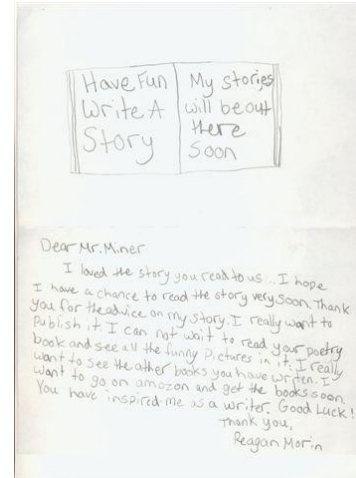 Have Fun
Write A
Story
My stories
will be out
there
Soon
Dear Mr. Miner
I loved the story you read to us. I hope
I have a chance to read the story very soon. Thank
you for the advice on my story. I really want to
Publish it. I can not wait to read your poetry
book and see all the funny Pictures in it. I really
want to see the other books you have writen. I
want to go on amozon and get the books soon.
You have inspired me as a writer. Good Luck!
Thank you,
Reagan Morin